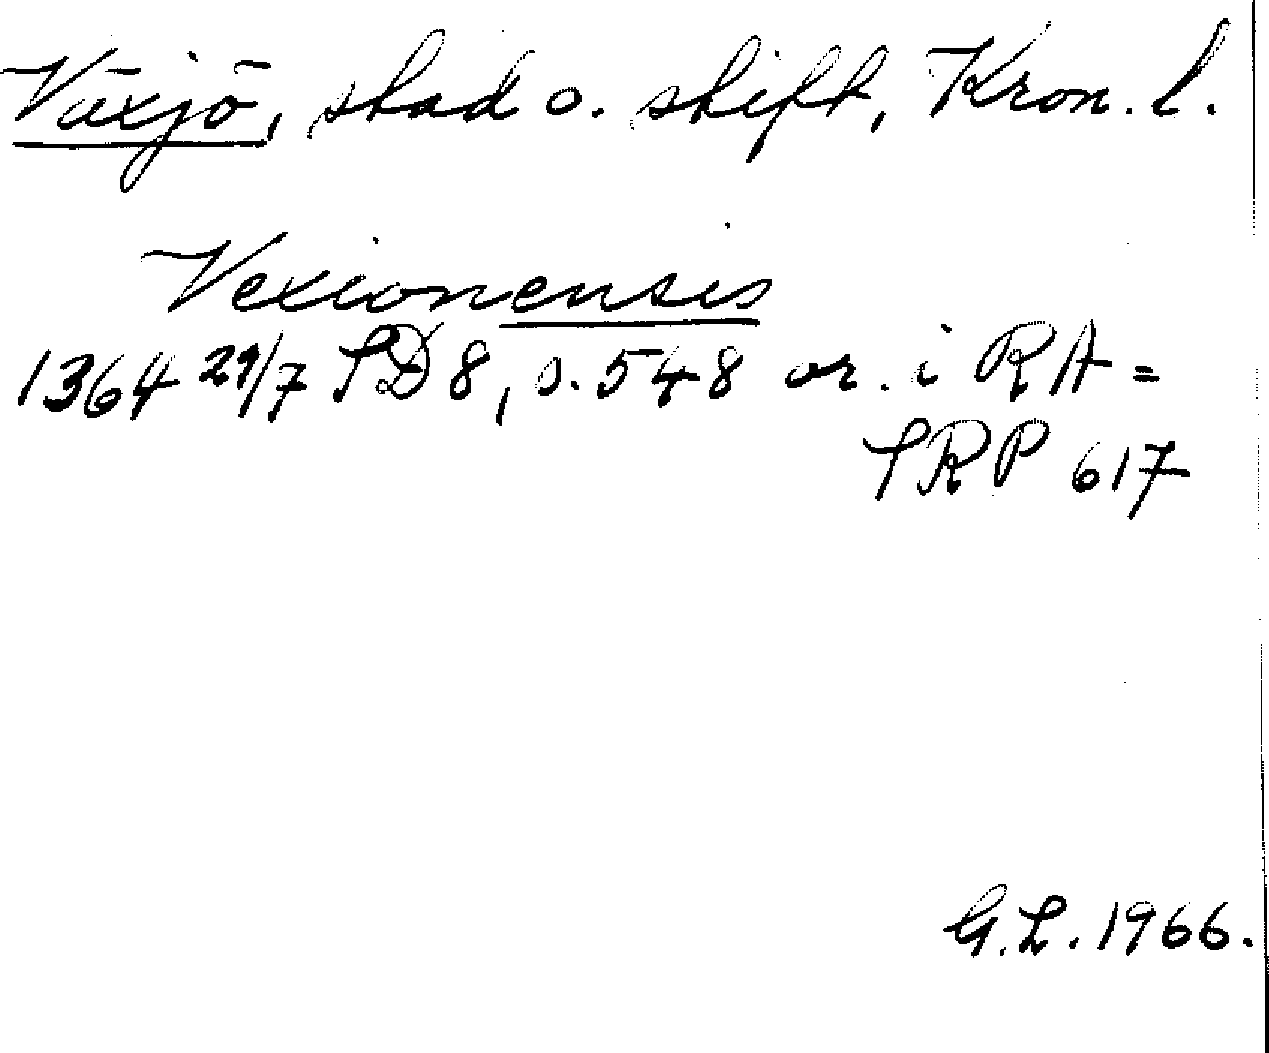 Växjö, stad o. stift, Kron. l.
Vexionensis
1364 29/7 SD 8, s. 548 or. i RA =
SRP 617
G.L. 1966.